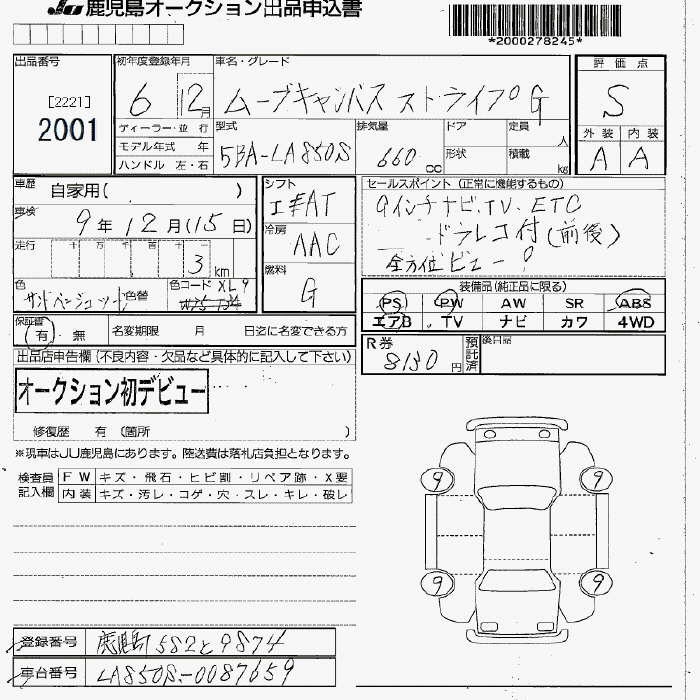 JU 鹿児島オークション出品申込書
*2000278245*
出品番号
[2221]
2001
初年度登録年月
6 12月
ディーラー・並 行
モデル年式 年
ハンドル 左・右
車名・グレード
ムーブキャンバス ストライプG
型式
5BA-LA850S
排気量
660 cc
ドア
形状
定員
人
積載
kg
評価点
S
外装 内装
A A
車歴
自家用( )
車検
9年 12月(15日)
走行
十 万 千 百 十 一
3 km
色
色替
色コード XL9
シフト
AT
冷房
AAC
燃料
G
セールスポイント (正常に機能するもの)
9インチナビ、TV、ETC
ドラレコ付(前後)
全方位ビュー
装備品(純正品に限る)
PS PW AW SR ABS
エアB TV ナビ カワ 4WD
保証書
有・無
名変期限 月 日迄に名変できる方
R券
8130円
預託済
後日品
出品店申告欄(不良内容・欠品など具体的に記入して下さい)
オークション初デビュー
修復歴 有 (箇所 )
※現車はJU鹿児島にあります。陸送費は落札店負担となります。
検査員記入欄
FW キズ・飛石・ヒビ割・リペア跡・X要
内装 キズ・汚レ・コゲ・穴・スレ・キレ・破レ
9 9
9 9
登録番号 鹿児島582と9874
車台番号 LA850S-0087659